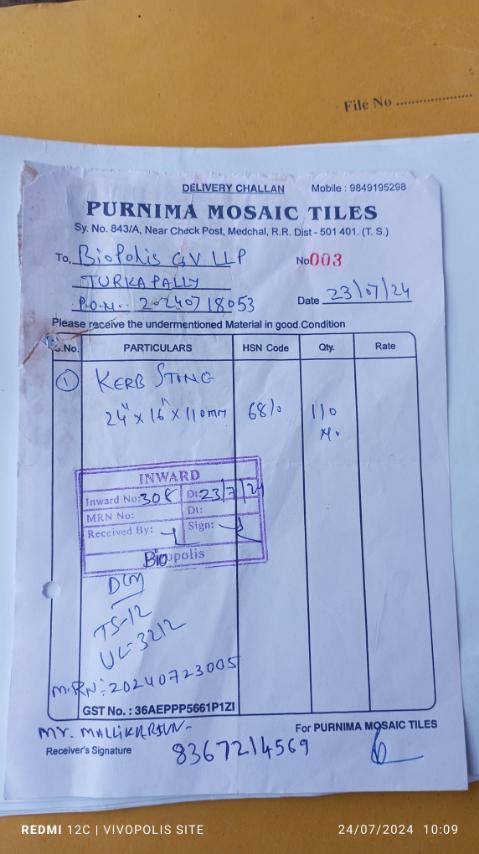 File No ....................
DELIVERY CHALLAN Mobile : 9849195298
PURNIMA MOSAIC TILES
Sy. No. 843/A, Near Check Post, Medchal, R.R. Dist - 501 401. (T. S.)
To, BioPolis GV LLP No 003
TURKAPALLY
P.O.N. 20240718053 Date 23/07/24
Please receive the undermentioned Material in good Condition
S.No. PARTICULARS HSN Code Qty. Rate
① KERB STONG
24" x 16" x 110mm 6810 110
INWARD
Inward No: 308 Dt: 23/7/24
MRN No: Dt:
Received By: Sign:
Biopolis
TS-12
M.RN: 20240723005
GST No. : 36AEPPP5661P1ZI
MY. MALLIKARJUN- For PURNIMA MOSAIC TILES
Receiver's Signature 8367214569
REDMI 12C | VIVOPOLIS SITE 24/07/2024 10:09